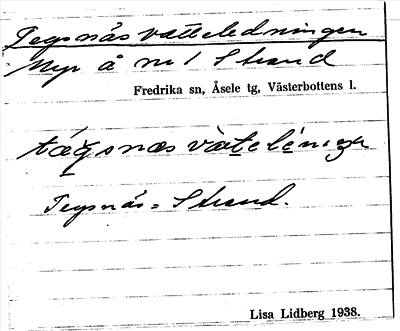 Tegsnäs vatteledningen
Myr å nr 1 Strand
Fredrika sn, Åsele tg, Västerbottens l.
Tegsnäs = Strand.
Lisa Lidberg 1938.